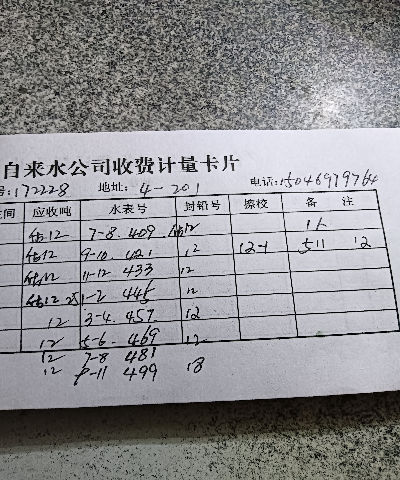 自来水公司收费计量卡片
号:172228 地址: 4-201 电话:15046979764
间 应收吨 水表号 封铅号 擦校 备 注
估12 7-8. 409 12 1人
估12 9-10. 421 12 12-1 511 12
估12 11-12 433 12
估12 1-2 445 12
12 3-4. 457 12
12 5-6. 469 12
12 7-8 481
12 9-11 499 18